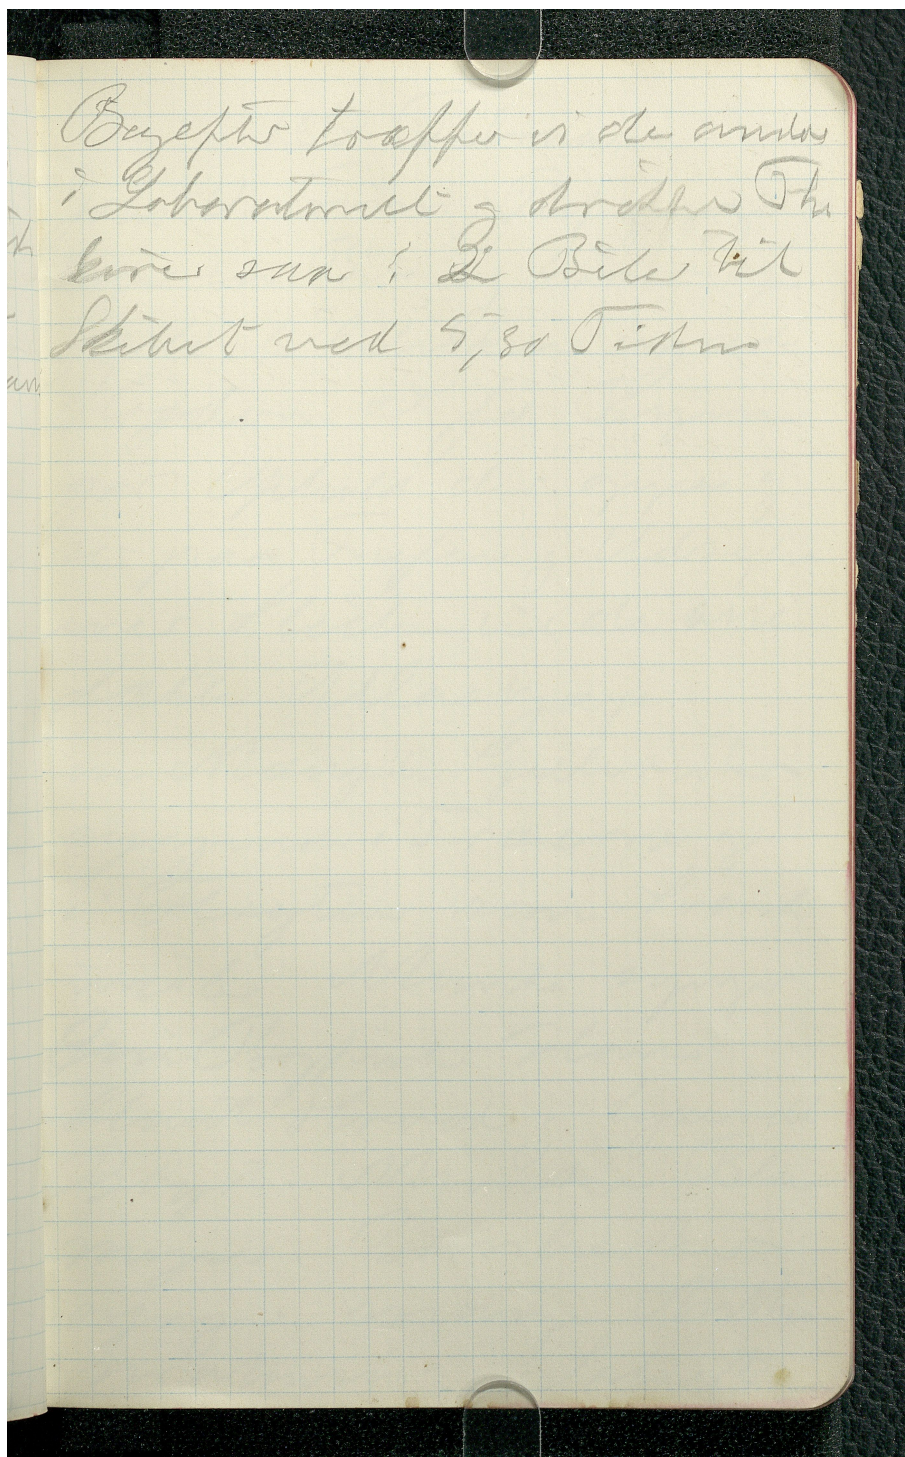 Bagefter træffer vi de andre
i Laboratoriet og drikker The
kører saa i 2 Biler til
Skibet ved 5,30 Tiden